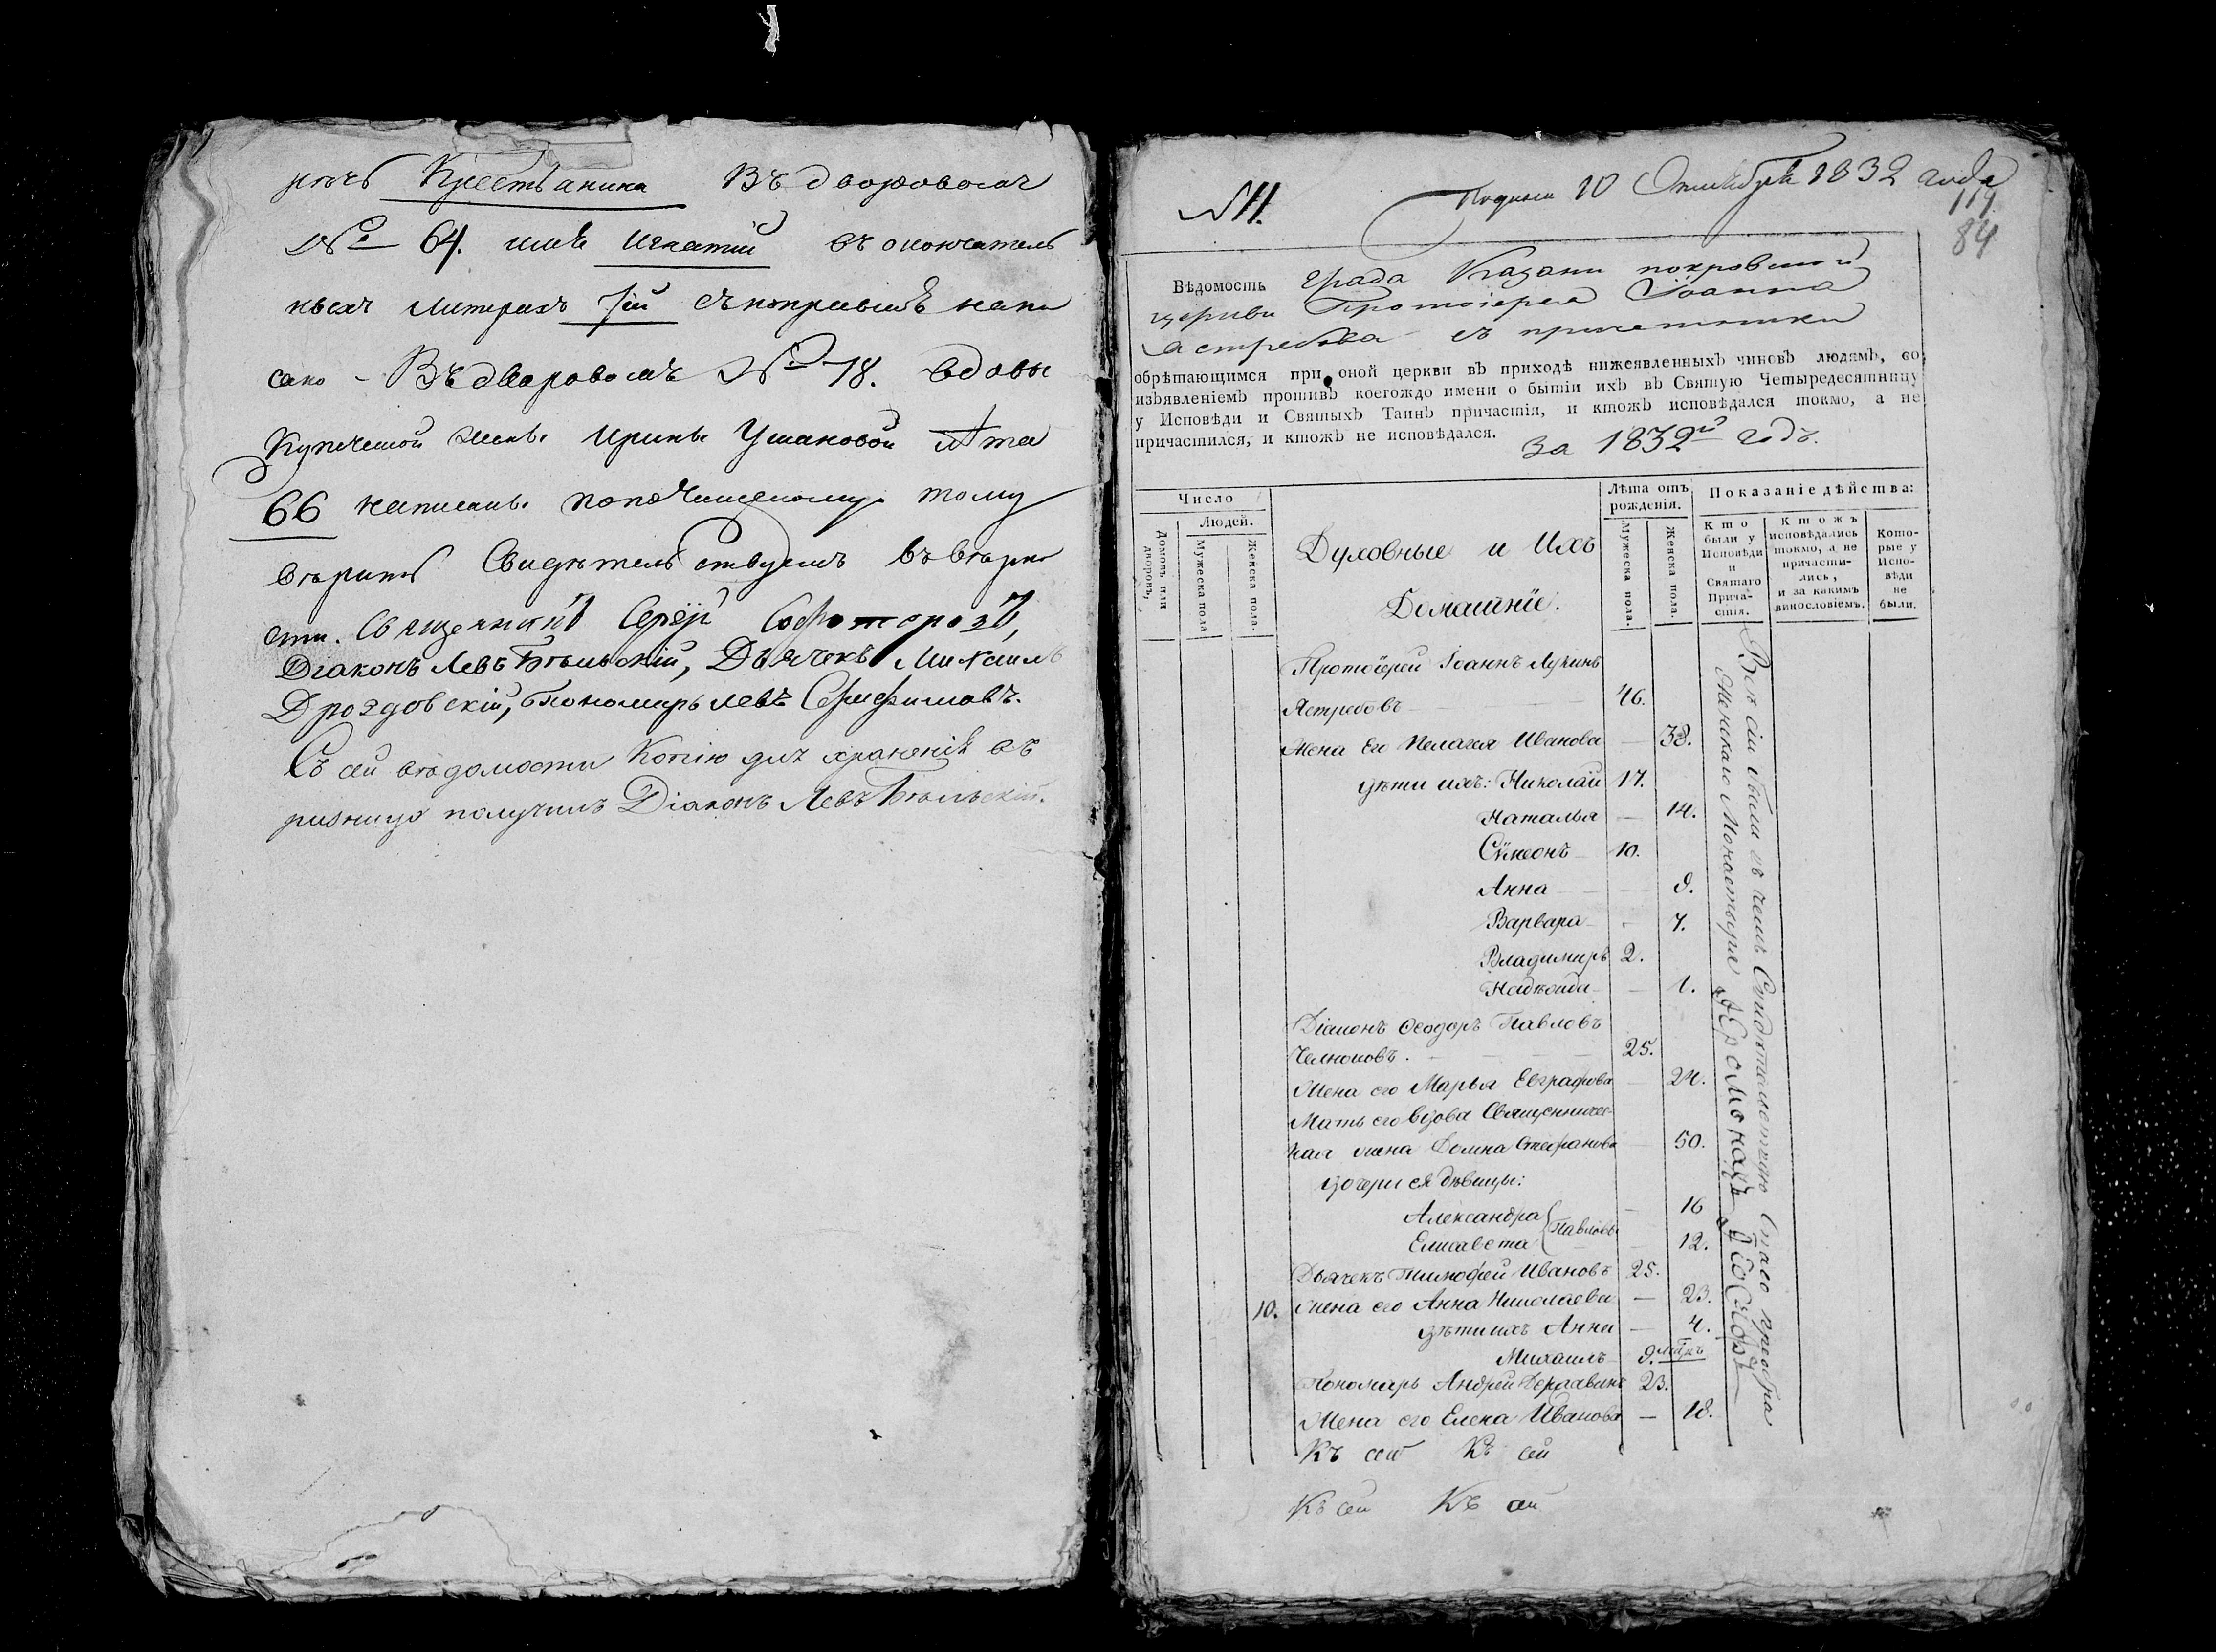 рокъ Крестьянина Въ дворовомъ
№ 64. имя Игнатій въ окончатель
ныхъ литерахъ тій съ поправкою напи
сано - Въ дворовомъ № 78. вдовы
Купеческой жены Ирины Ушаковой лѣта
66 написаны по почищенному тому
вѣрить Свидѣтельствуемъ въ вѣрно
сти. Священникъ Сергѣй
Діаконъ Левъ Бѣльскій, Дьячекъ Михаилъ
Дроздовскій, Пономарь левъ Серафимовъ.
Съ сей вѣдомости Копію для храненія въ
ризницу получилъ Діаконъ Левъ Бѣльскій.
№ 11. 10 Октября 1832 года
114
84
Вѣдомость града Казани покровской
церкви Протоіерея Іоанна
Ястребова съ причетники
обрѣтающимся при оной церкви въ приходѣ нижеявленныхъ чиновъ людямъ, со
изъявленіемъ противъ коегождо имени о бытіи ихъ въ Святую Четыредесятницу
у Исповѣди и Святыхъ Таинъ причастія, и ктожъ исповѣдался токмо, а не
причастился, и ктожъ не исповѣдался. за 1832й годъ.
Число
Людей.
Домовъ или дворовъ,
Мужеска пола
Женска пола.
Духовные и Ихъ
Домашніе.
Лѣта отъ рожденія.
Мужеска пола.
Женска пола.
Показаніе дѣйства:
Кто были у Исповѣди и Святаго Причастія.
Ктожъ исповѣдались токмо, а не причастились, и за какимъ винословіемъ.
Которые у Исповѣди не были.
Протоіерей Іоаннъ Лукинъ
Ястребовъ 46.
Жена Его Пелагея Иванова — 38.
дѣти ихъ: Николай 17.
Наталья — 14.
Сѵмеонъ 10.
Анна — 9.
Варвара - 7.
Владимиръ 2.
Надежда — 1.
Діаконъ Ѳеодоръ Павловъ
Челноковъ. 25.
Жена его Марья Евграфова — 24.
Мать его вдова Священничес-
кая жена Домна Стефанова — 50.
дочери ея дѣвицы:
Александра — 16
Елисавета — 12.
Павловы
Дьячекъ Тимофей Ивановъ 25.
10. жена его Анна Николаева — 23.
дѣти ихъ Анна — 4.
Михаилъ 9.
Пономарь Андрей Державинъ 23.
Жена его Елена Иванова — 18.
Къ сей Къ сей
Къ сей Къ сей
Всѣ сіи были въ чемъ Свидѣтельствую Спасо преобра
женскаго Монастыря Іеромонахъ Іосифъ